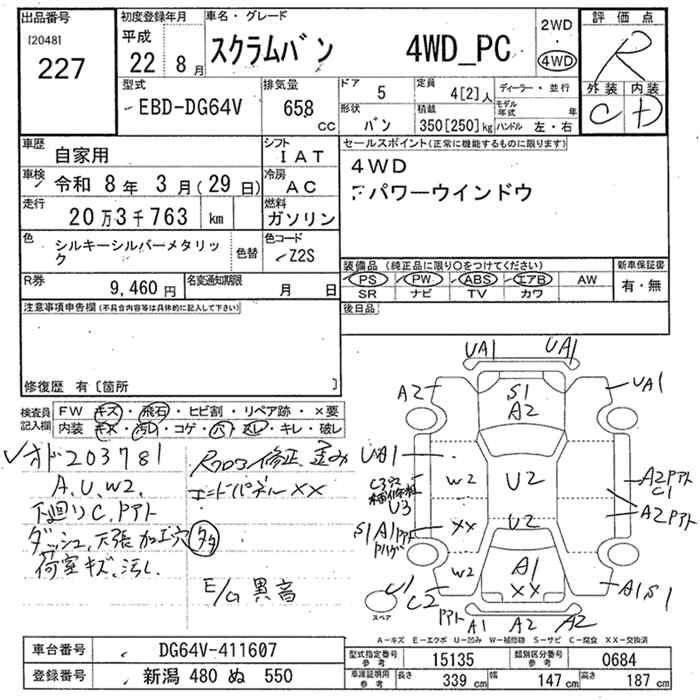 出品番号
[2048]
227
初度登録年月
平成
22 8 月
車名・グレード
スクラムバン 4WD_PC
2WD
4WD
評価点
R
外装 内装
C D
型式
EBD-DG64V
排気量
658 CC
ドア 5
定員 4[2]人
形状 バン
積載 350[250]kg
ディーラー・並行
モデル年式 年
ハンドル 左・右
車歴 自家用
シフト IAT
車検 令和 8年 3月(29日)
冷房 AC
走行 20万3千763 km
燃料 ガソリン
色 シルキーシルバーメタリック
色替
色コード Z2S
R券 9,460円
名変通知期限 月 日
セールスポイント(正常に機能するものに限ります)
4WD
パワーウインドウ
装備品 (純正品に限り○をつけてください)
PS PW ABS エアB AW
SR ナビ TV カワ
新車保証書
有・無
後日品
注意事項申告欄(不具合内容等は具体的に記入して下さい)
修復歴 有〔箇所 〕
検査員記入欄
FW キズ・飛石・ヒビ割・リペア跡・×要
内装 キズ・汚れ・コゲ・穴・ヌレ・キレ・破レ
203781
A、U、W2、
下廻りC、Pアト
ダッシュ、天張加工穴 多
荷室キズ、汚レ
修正、歪み
エンドパネルXX
E/G異音
UA1 UA1
A2 UA1
S1
A2
UA1
W2 U2
U3
A2Pアト
C1
S1A1
XX U2 A2Pアト
W2 A1
XX
A1S1
U1
C2 Pアト
A1 A2 A2
スペア
A－キズ E－エクボ U－凹み W－補修跡 S－サビ C－腐食 XX－交換済
車台番号 DG64V-411607
登録番号 新潟 480 ぬ 550
型式指定番号 参考 15135
類別区分番号 参考 0684
車庫証明用 参考 長さ 339 cm 幅 147 cm 高さ 187 cm